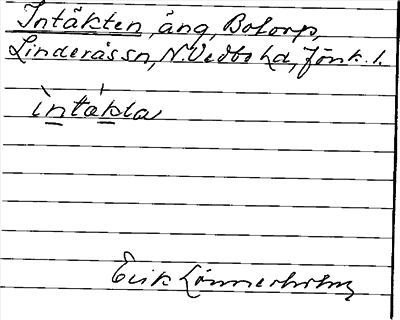 Intäkten, äng, Botorp,
Linderås sn, N. Vedbo hd, Jönk. l.
ìntákta
Erik Lönnerholm